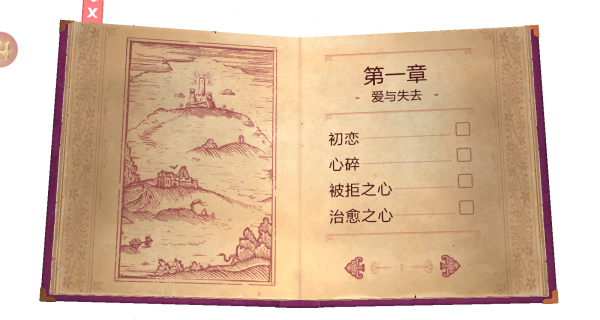 x
第一章
- 爱与失去 -
初恋
心碎
被拒之心
治愈之心